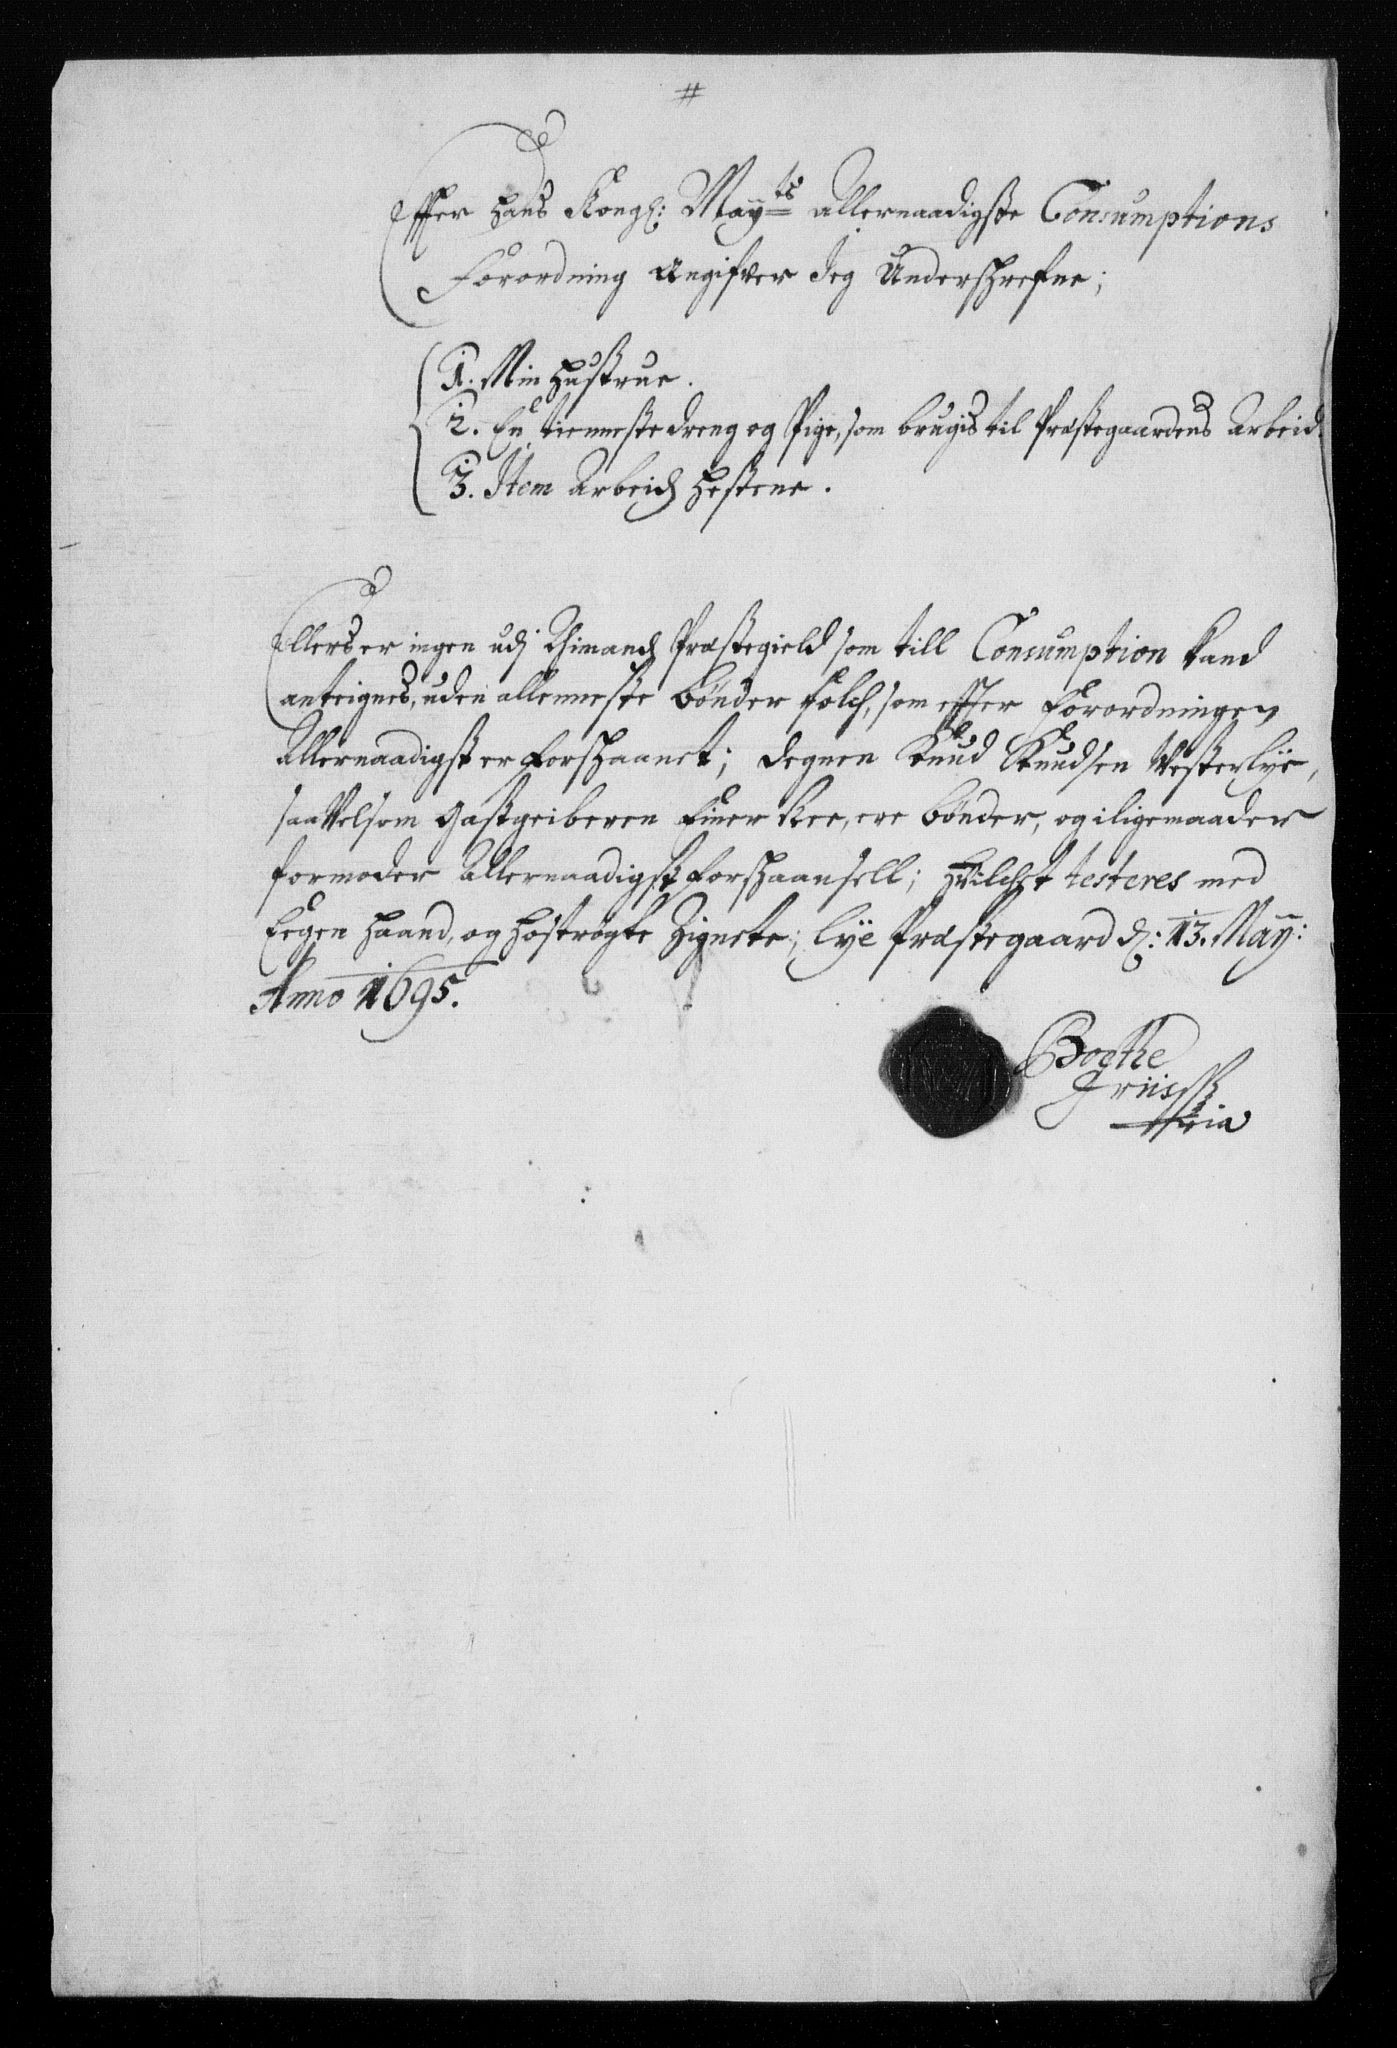 #
Effter Hans Kongl: Mayts allernaadigste Consumptions
Forordning Angifver Jeg Underschrefne;
1. Min Hustrue.
2. En tienneste dreng og Pige, som brugis til Præstegaardens Arbeid.
3. Item Arbeids Hestene.
Ellers er ingen udj Præstegield som till Consumption kand
anteignes, uden alleneste bønder folch, som effter Forordningen
Allernaadigst er forschaanet; degnen Knud Knudsen Vesterlye,
saavelsom Gastgeiberen Einer, ere bønder, og i ligemaader
formoder Allernaadigst forschaansell; Hvilchet testeres med
Eegen Haand, og hostrøgte Zignete; Lye Præstegaard d: 13. Maÿ:
Anno 1695.
Boethe